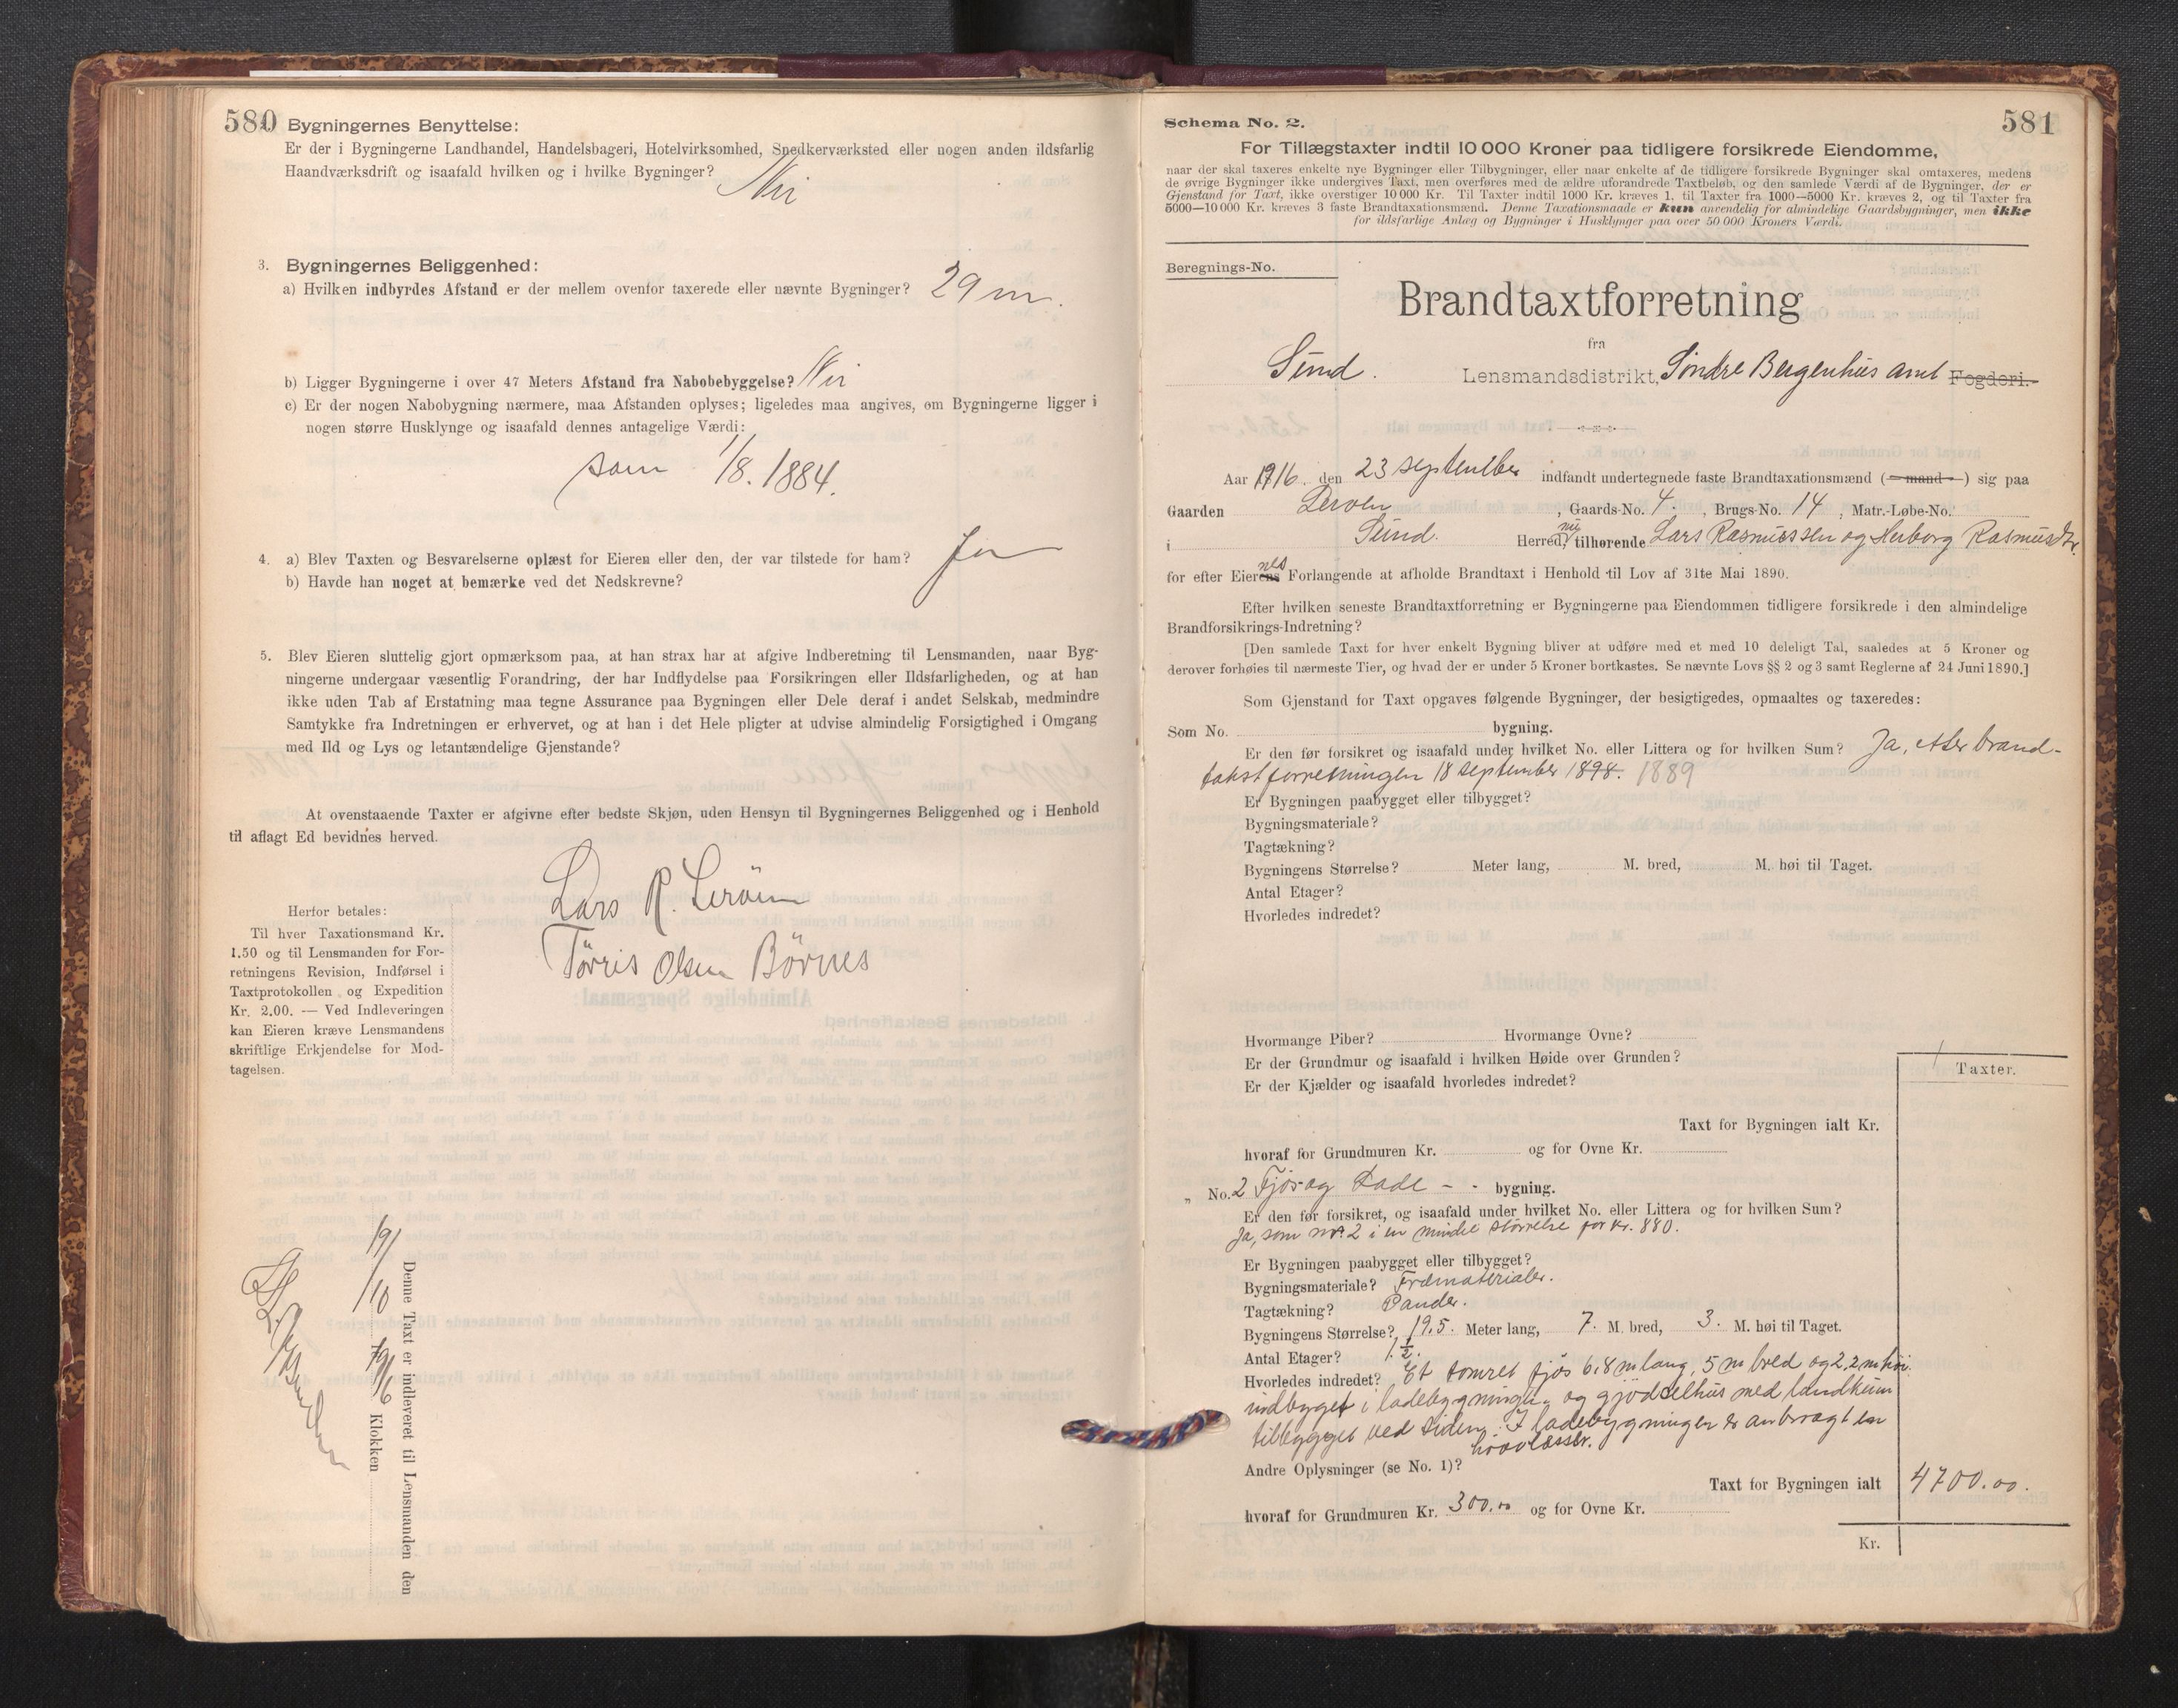 580
Bygningernes Benyttelse:
Er der i Bygningerne Landhandel, Handelsbageri, Hotelvirksomhed, Snedkerværksted eller nogen anden ildsfarlig
Haandværksdrift og isaafald hvilken og i hvilke Bygninger? Nei
3. Bygningernes Beliggenhed:
a) Hvilken indbyrdes Afstand er der mellem ovenfor taxerede eller nævnte Bygninger? 29 m.
b) Ligger Bygningerne i over 47 Meters Afstand fra Nabobebyggelse? Nei
c) Er der nogen Nabobygning nærmere, maa Afstanden oplyses; ligeledes maa angives, om Bygningerne ligger i
nogen større Husklynge og isaafald dennes antagelige Værdi:
som 1/8. 1884.
4. a) Blev Taxten og Besvarelserne oplæst for Eieren eller den, der var tilstede for ham? Ja
b) Havde han noget at bemærke ved det Nedskrevne?
5. Blev Eieren sluttelig gjort opmærksom paa, at han strax har at afgive Indberetning til Lensmanden, naar Byg-
ningerne undergaar væsentlig Forandring, der har Indflydelse paa Forsikringen eller Ildsfarligheden, og at han
ikke uden Tab af Erstatning maa tegne Assurance paa Bygningen eller Dele deraf i andet Selskab, medmindre
Samtykke fra Indretningen er erhvervet, og at han i det Hele pligter at udvise almindelig Forsigtighed i Omgang
med Ild og Lys og letantændelige Gjenstande?
At ovenstaaende Taxter er afgivne efter bedste Skjøn, uden Hensyn til Bygningernes Beliggenhed og i Henhold
til aflagt Ed bevidnes herved.
Lars R. Leröen
Törris Olsen Börnes
Herfor betales:
Til hver Taxationsmand Kr.
1.50 og til Lensmanden for For-
retningens Revision, Indførsel i
Taxtprotokollen og Expedition
Kr. 2.00. — Ved Indleveringen
kan Eieren kræve Lensmandens
skriftlige Erkjendelse for Mod-
tagelsen.
Denne Taxt er indleveret til Lensmanden den
19/10 1916 Klokken
581
Schema No. 2.
For Tillægstaxter indtil 10 000 Kroner paa tidligere forsikrede Eiendomme,
naar der skal taxeres enkelte nye Bygninger eller Tilbygninger, eller naar enkelte af de tidligere forsikrede Bygninger skal omtaxeres, medens
de øvrige Bygninger ikke undergives Taxt, men overføres med de ældre uforandrede Taxtbeløb, og den samlede Værdi af de Bygninger, der er
Gjenstand for Taxt, ikke overstiger 10 000 Kr. Til Taxter indtil 1000 Kr. kræves 1, til Taxter fra 1000—5000 Kr. kræves 2, og til Taxter fra
5000—10 000 Kr. kræves 3 faste Brandtaxationsmænd. Denne Taxationsmaade er kun anvendelig for almindelige Gaardsbygninger, men ikke
for ildsfarlige Anlæg og Bygninger i Husklynger paa over 50 000 Kroners Værdi.
Beregnings-No.
Brandtaxtforretning
fra
Sund. Lensmandsdistrikt, Söndre Bergenhus amt Fogderi.
Aar 1916. den 23 september indfandt undertegnede faste Brandtaxationsmænd (mand) sig paa
Gaarden Leroen, Gaards-No. 4., Brugs-No. 14, Matr.-Løbe-No.
i Sund. Herred, tilhørende Lars Rasmussen og Herborg Rasmusdtr.
for efter Eierens nes Forlangende at afholde Brandtaxt i Henhold til Lov af 31te Mai 1890.
Efter hvilken seneste Brandtaxtforretning er Bygningerne paa Eiendommen tidligere forsikrede i den almindelige
Brandforsikrings-Indretning?
[Den samlede Taxt for hver enkelt Bygning bliver at udføre med et med 10 deleligt Tal, saaledes at 5 Kroner og
derover forhøies til nærmeste Tier, og hvad der er under 5 Kroner bortkastes. Se nævnte Lovs §§ 2 og 3 samt Reglerne af 24 Juni 1890.]
Som Gjenstand for Taxt opgaves følgende Bygninger, der besigtigedes, opmaaltes og taxeredes:
Som No. bygning.
Er den før forsikret og isaafald under hvilket No. eller Littera og for hvilken Sum? Ja, efter brand-
takstforretningen 18 september 1898. 1889
Er Bygningen paabygget eller tilbygget?
Bygningsmateriale?
Tagtækning?
Bygningens Størrelse? Meter lang, M. bred, M. høi til Taget.
Antal Etager?
Hvorledes indredet?
Hvormange Piber? Hvormange Ovne?
Er der Grundmur og isaafald i hvilken Høide over Grunden?
Er der Kjælder og isaafald hvorledes indredet?
Taxter.
Taxt for Bygningen ialt Kr.
hvoraf for Grundmuren Kr. og for Ovne Kr.
„ No. 2 Fjös og Lade - - bygning.
Er den før forsikret, og isaafald under hvilket No. eller Littera og for hvilken Sum?
Ja, som no. 2 i en mindre størrelse for kr. 880.
Er Bygningen paabygget eller tilbygget?
Bygningsmateriale? Trædmaterialer.
Tagtækning? Pander.
Bygningens Størrelse? 19.5. Meter lang, 7. M. bred, 3. M. høi til Taget.
Antal Etager? 1 1/2.
Hvorledes indredet? Et tömret fjös 6,8 m lang, 5 m bred og 2,2 m höi
indbygget i ladebygningen og gjödselhus med landkum
tilbygget ved siden. I ladebygningen er anbragt en
Andre Oplysninger (se No. 1)?
Taxt for Bygningen ialt 4700.00.
hvoraf for Grundmuren Kr. 300.00 og for Ovne Kr.
Kr.